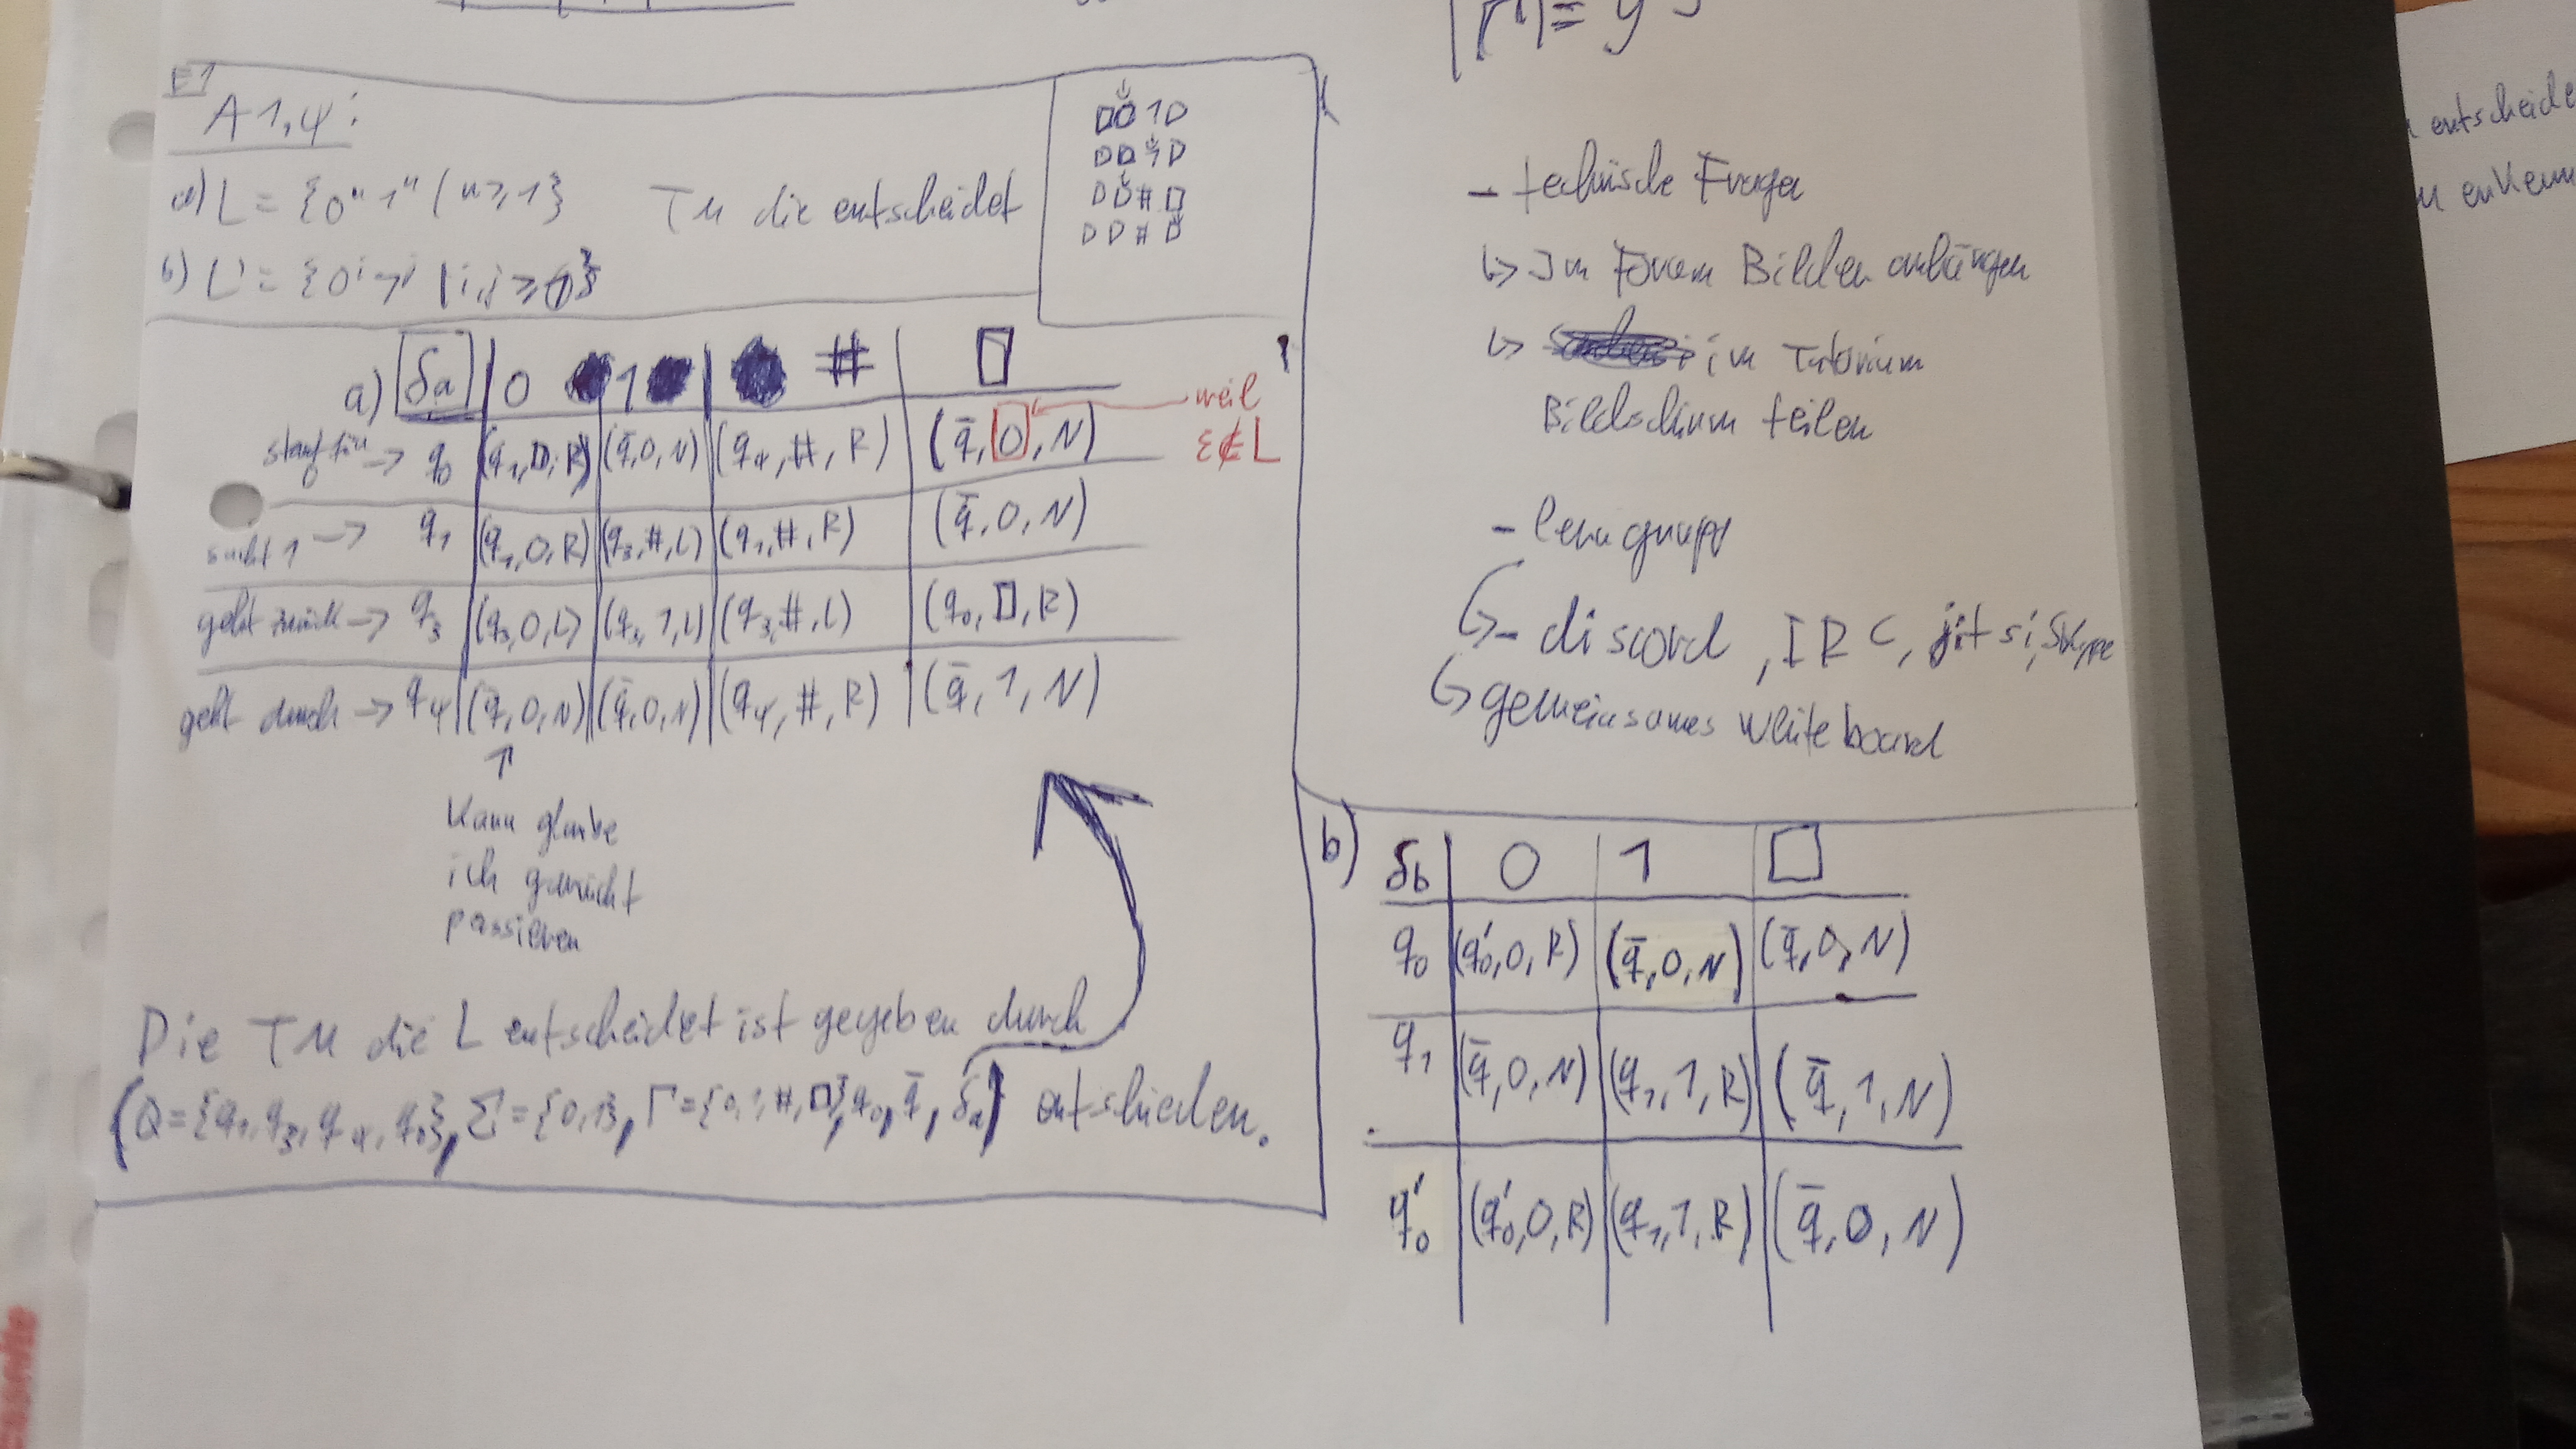 |Γ| = y
E1
A1,4:
a) L = {0ⁿ1ⁿ | n ≥ 1} TM die entscheidet
b) L' = {0ⁱ1ʲ | i,j ≥ 1}
□0 1□
□□ 1□
□□#□
□□#□
a) δa 0 1 # □
q0 (q1,□,R) (q̄,0,N) (q4,#,R) (q̄,0,N)
weil
ε∉L
sucht 1 → q1 (q1,0,R) (q3,#,L) (q1,#,R) (q̄,0,N)
geht zurück → q3 (q3,0,L) (q3,1,L) (q3,#,L) (q0,□,R)
geht durch → q4 (q̄,0,N) (q̄,0,N) (q4,#,R) (q̄,1,N)
↑
kann glaube
ich garnicht
passieren
Die TM die L entscheidet ist gegeben durch
(Q={q1,q3,q4,q0}, Σ={0,1}, Γ={0,1,#,□},q0,q̄,δa) entschieden.
- technische Fragen
↳ Im Forum Bilder anhängen
↳ im Tutorium
Bildschirm teilen
- lerngruppe
↳- discord, IRC, jitsi, Skype
↳ gemeinsames whiteboard
b) δb 0 1 □
q0 (q0',0,R) (q̄,0,N) (q̄,0,N)
q1 (q̄,0,N) (q1,1,R) (q̄,1,N)
q0' (q0',0,R) (q1,1,R) (q̄,0,N)
entscheide